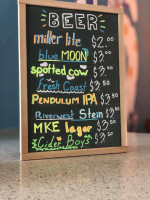 BEER
miller lite $2.00
blue MOON $3.00
spotted cow $3.50
Fresh Coast $3.50
PENDULUM IPA $3.50
Riverwest Stein $3.50
MKE lager $3.50
Cider Boys $3.50